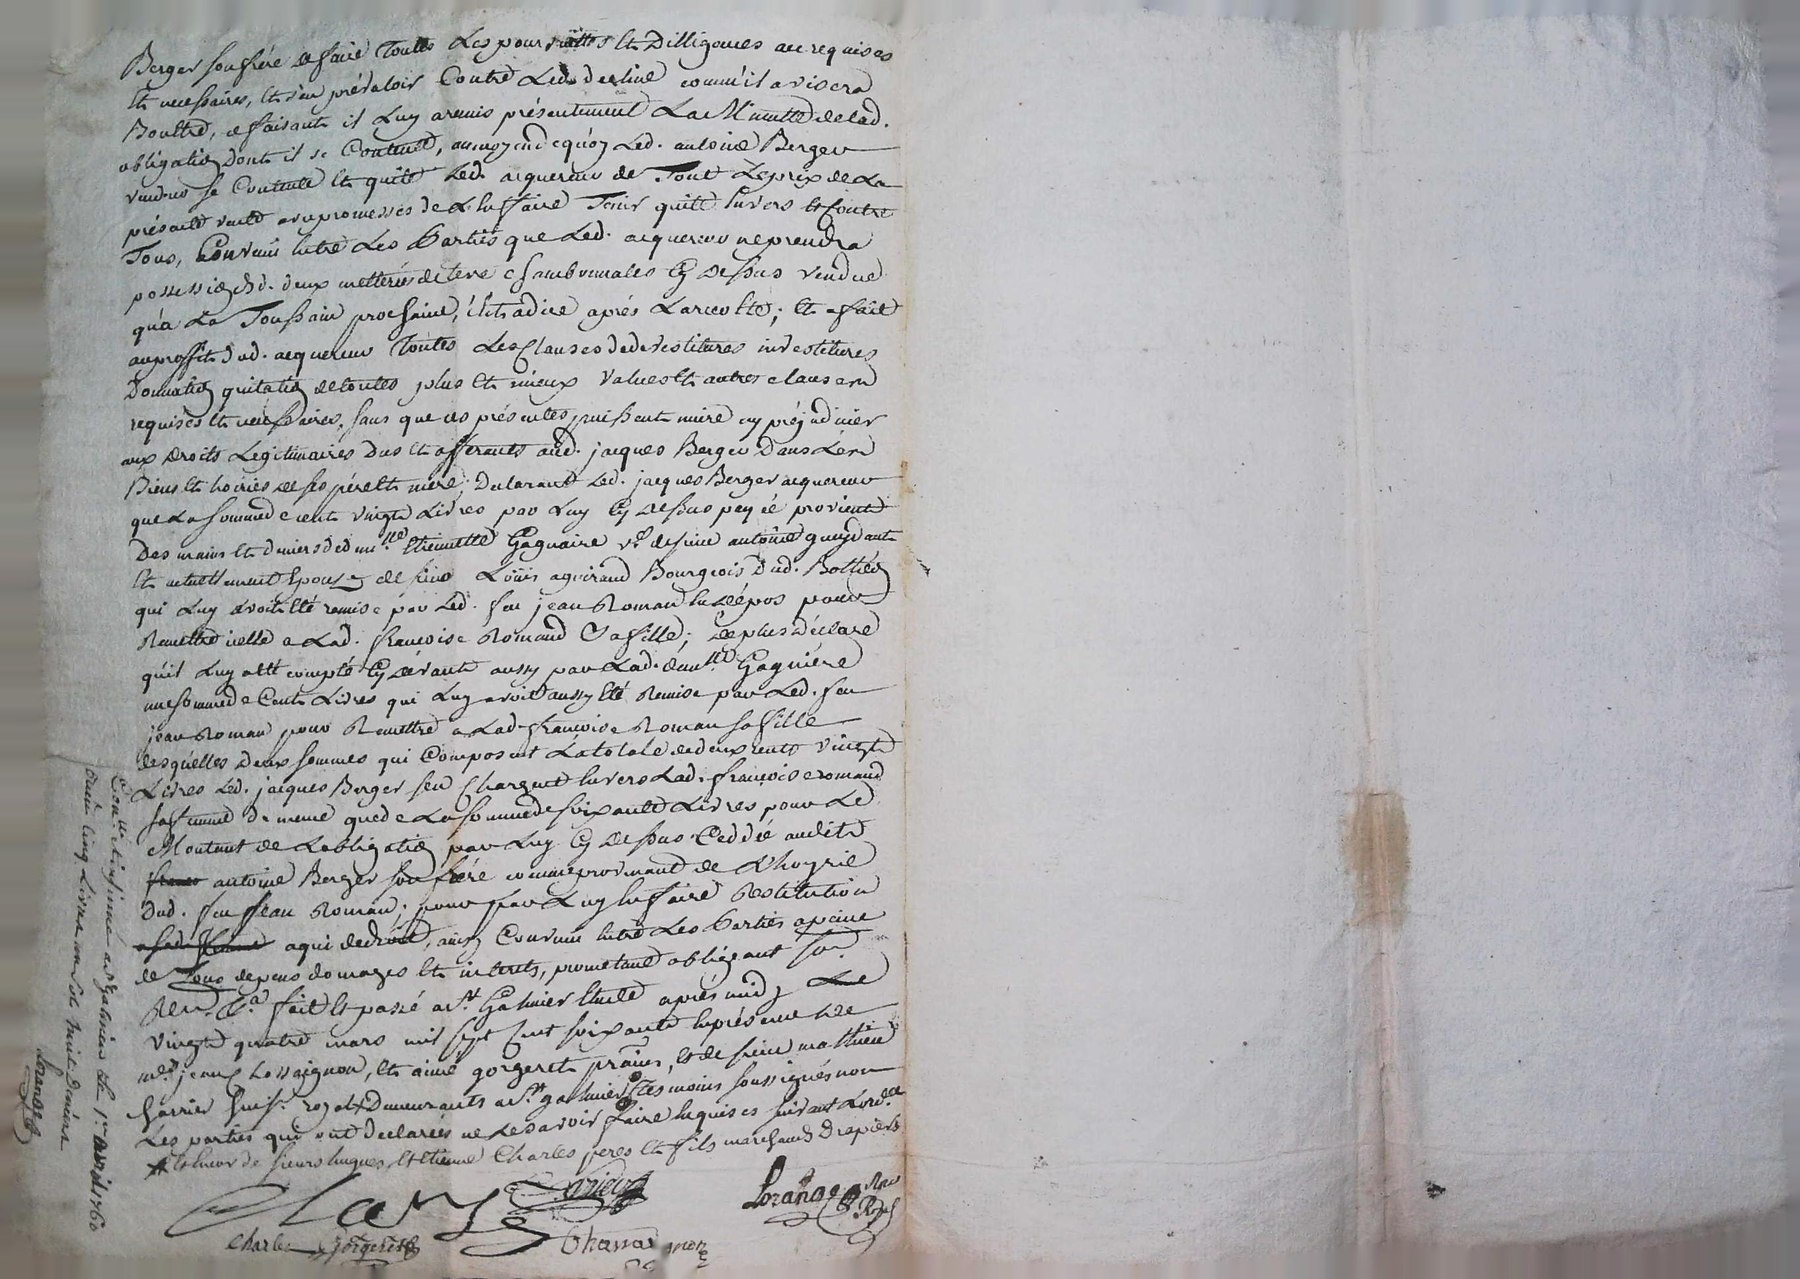 Berger son frére de faire toutes Les poursuittes Et Dilligences au requises
Et necessaires, Et s'en prévaloir Contre Led. comm'il avisera
Boultre, ce faisant il Luy a remis présentement La Minutte de lad.
obligation dont il se Contente, au moyen de quoy Led. antoine Berger
vendeur se Contente Et quite Led. acquereur de Tout Le prix de La
présente vente avec promesses de L'En faire Tenir quite Envers Et Contre
Tous, Convenu Entre Les Parties que Led. acquereur ne prendra
possession d. deux metteries de terre Cy Dessus vendue
qu'a La Toussain prochaine, c'Est a dire aprés La recolte; Et a fait
au proffit dud. acquereur Toutes Les Clauses de devestitures investitures
Donnation quitation de toutes plus Et mieux values Et autres clauses
requises Et necessaires, sans que ces présentes puissent nuire ny préjudicier
aux Droits Légitimaires Dus Et afferants aud. jacques Berger Dans Les
Biens Et hoiries de ses pére Et mére; Declarant Led. jacques Berger acquereur
que La somme de cent vingt Livres par Luy Cy Dessus payée provient
Des mains Et deniers de dem.lle Etiennette Gagnaire v.e de sieur antoine
Et actuellement Epouse de sieur Loüis aguiraud Bourgeois Dud.
qui Luy avoit Eté remise par Led. feu jean Roman En Dépos pour
Remettre icelle a Lad. francoise Romand Sa fille; De plus Déclare
qu'il Luy a Eté compté Cy Devant aussy par Lad. dem.lle Gagniére
une somme de Cent Livres qui Luy avoit aussy Eté Remise par Led. feu
jean Roman pour Remettre a Lad. francoise Roman sa fille
Lesquélles Deux sommes qui Composent La totale de deux cents vingt
Livres Led. jacques Berger s'en Chargent Envers Lad. francoise romand
sa femme de meme que de La somme de soixante Livres pour Le
Montant de L'obligation par Luy Cy Dessus Ceddée audit
antoine Berger son frére comme provenant de L'hoyrie
Dud. feu Jean Roman; pour par Luy En faire Restitution
a qui de droit, ainsy Convenu Entre Les Parties a peine
de Tous depens domages Et interets, prometant obligeant
Ren. &.a fait Et passé a S.t Galmier Etude aprés midy Le
vingt quatre mars mil sept Cent soixante En présence de
m.re jean Chassaignon, Et aimé gorgeret pra.ciens, Et de sieur mathieu
huis. royal Demeurants a S.t galmier Tesmoins soussignés non
Les parties qui ont declarées ne Le savoir faire Enquises suivant L'ord.ce
Et sieurs hugues Et Etienne Charles peres Et fils marchands Drapiers
Charles
Charles
Gorgeret
Chassaignon
Lorange
Con.lle Et insinué a S.t galmier Le 1.er avril 1760
Livres Et huit Deniers
Lorange